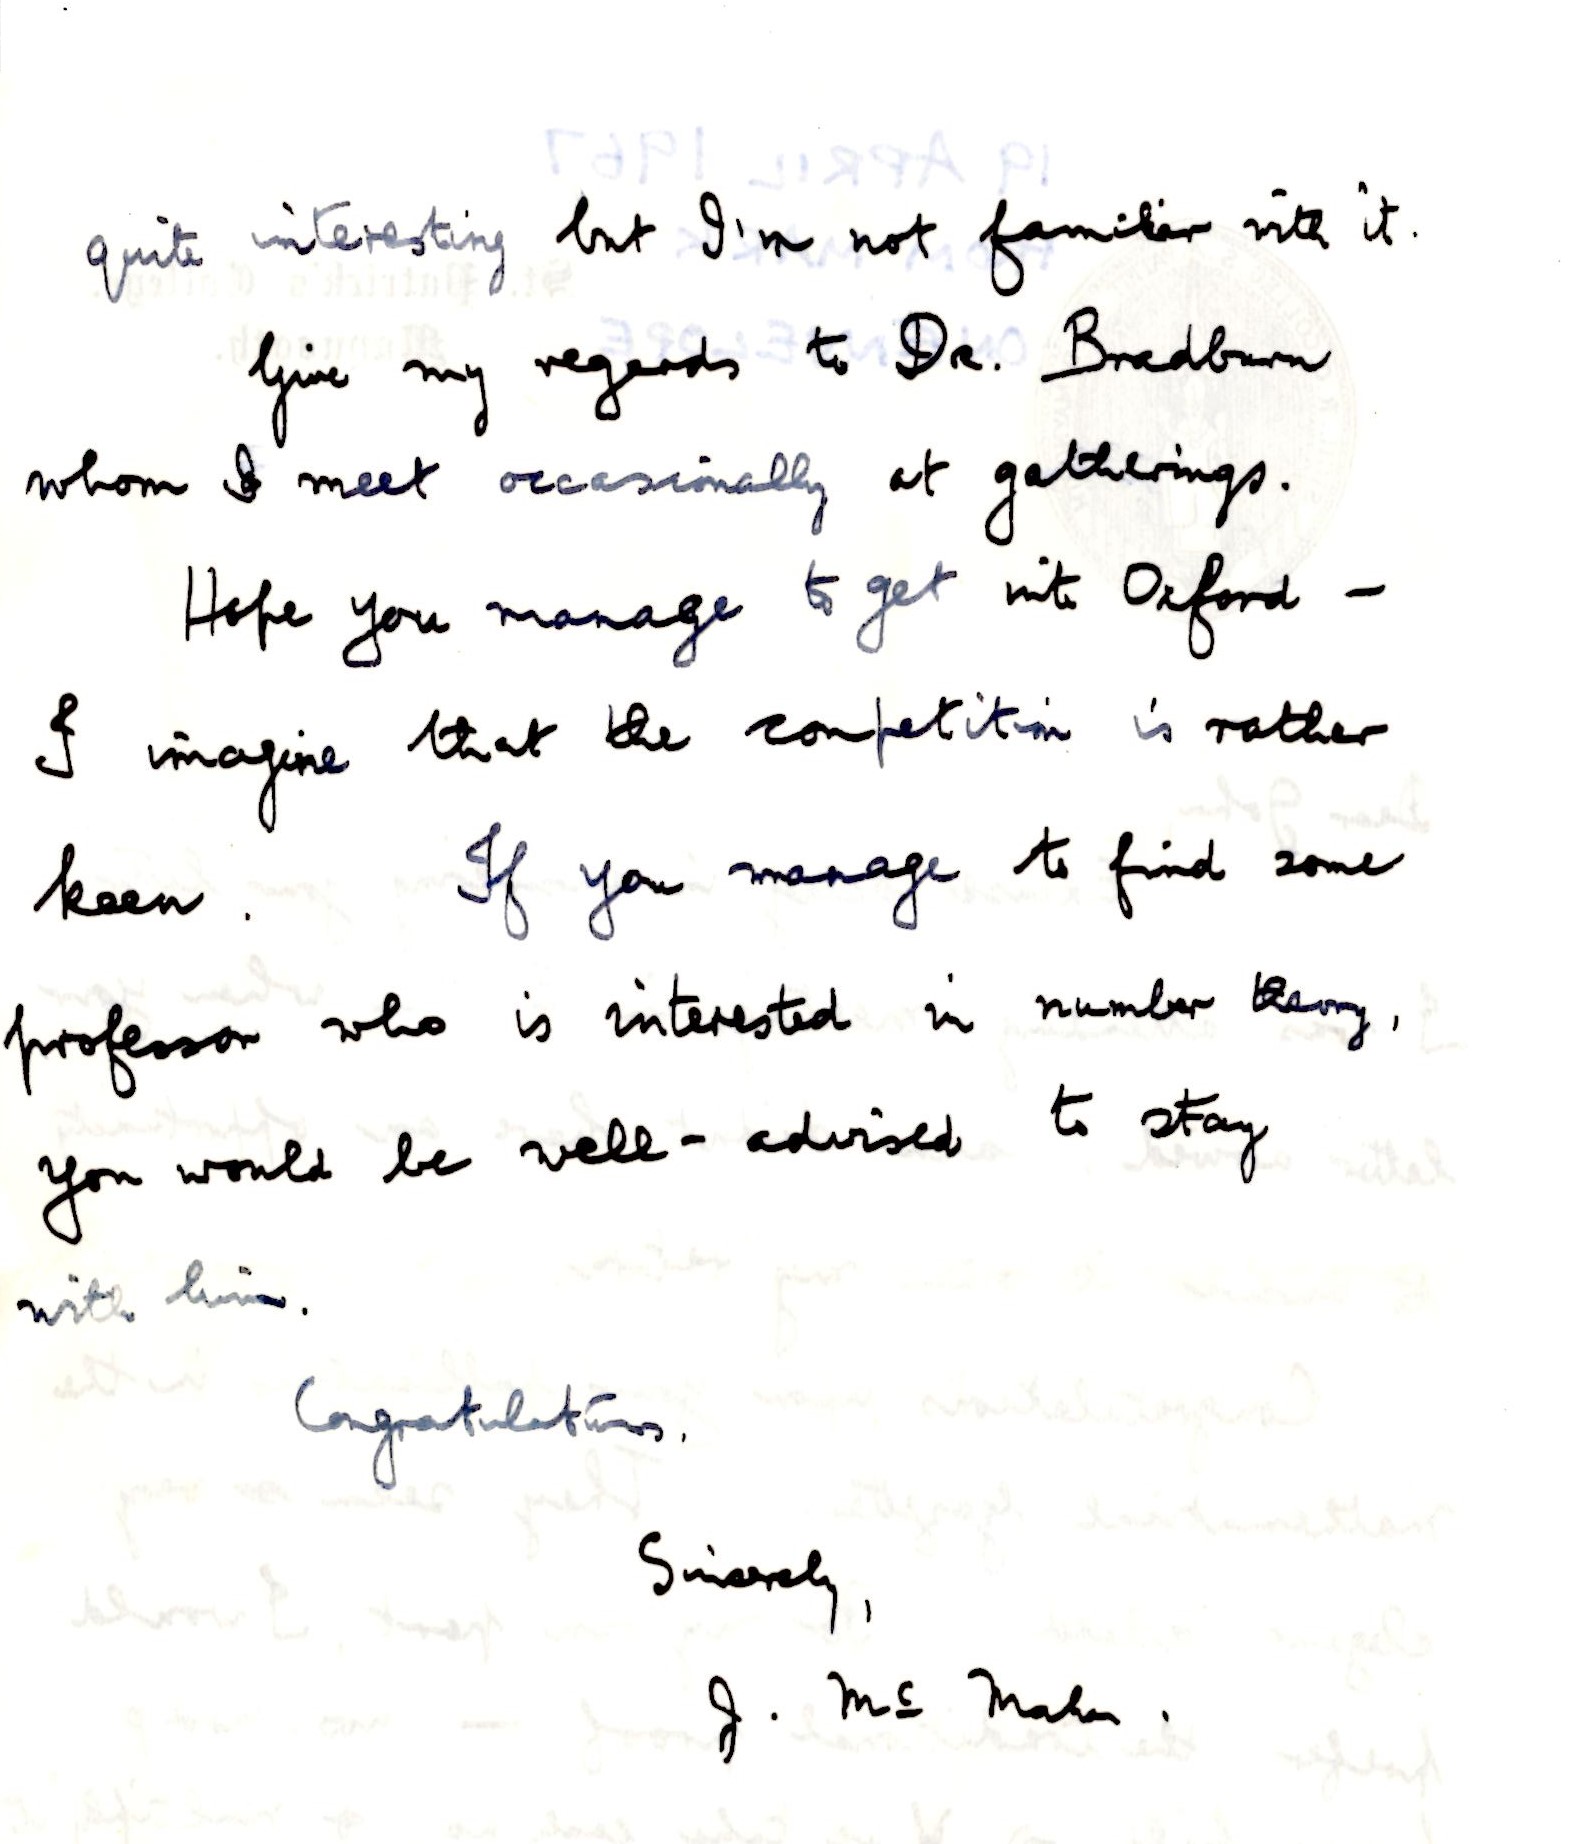 quite interesting but I'm not familiar with it.
Give my regards to Dr. Bradburn
whom I meet occasionally at gatherings.
Hope you manage to get into Oxford –
I imagine that the competition is rather
keen. If you manage to find some
professor who is interested in number theory,
you would be well-advised to stay
with him.
Congratulations.
Sincerely,
J. Mc Mahon.